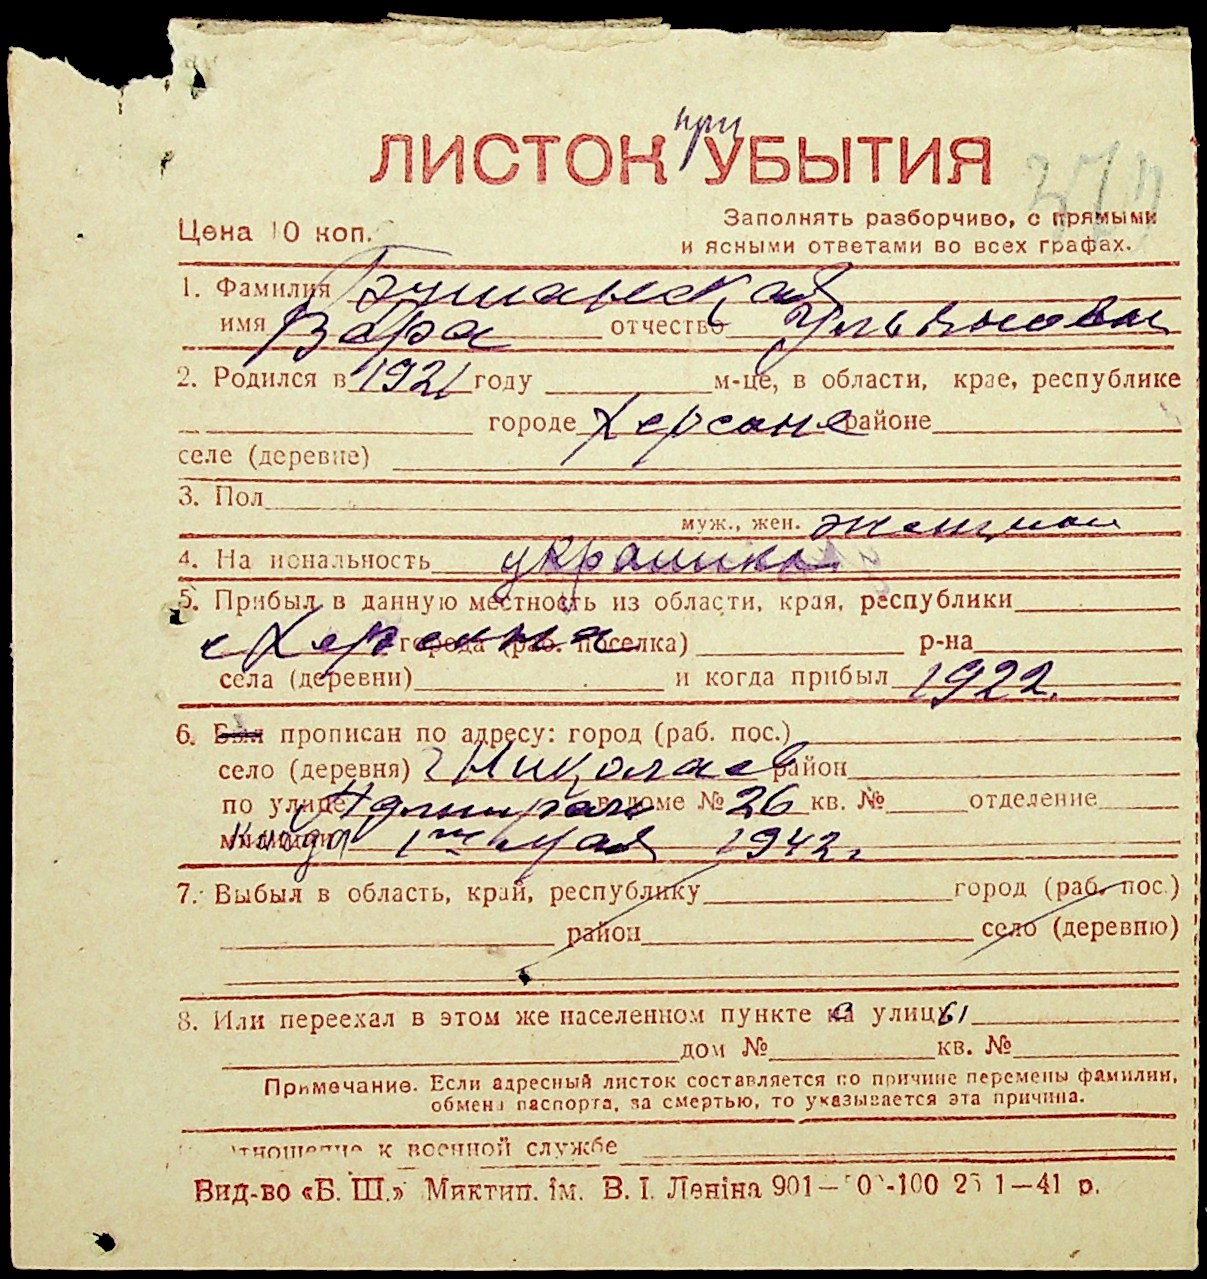 ЛИСТОК при УБЫТИЯ
Цена 10 коп.
Заполнять разборчиво, с прямыми
и ясными ответами во всех графах.
1. Фамилия
имя Вера отчество Ульяновна
2. Родился в 1921 году м-це, в области, крае, республике
городе Херсоне районе
селе (деревне)
3. Пол
муж., жен. женщина
4. На иональность украинка
5. Прибыл в данную местность из области, края, республики
с Херсона города (раб. поселка) р-на
села (деревни) и когда прибыл 1922.
6. Был прописан по адресу: город (раб. пос.)
село (деревня) г Николаев район
по улице Адмирал в доме № 26 кв. № отделение
милиции когда 1го мая 1942 г
7. Выбыл в область, край, республику город (раб. пос.)
район село (деревню)
8. Или переехал в этом же населенном пункте с улицы
дом № кв. №
Примечание. Если адресный листок составляется по причине перемены фамилии,
обмена паспорта, за смертью, то указывается эта причина.
отношение к военной службе
Вид-во «Б. Ш.» Миктип. ім. В. І. Леніна 901— -100 1—41 р.